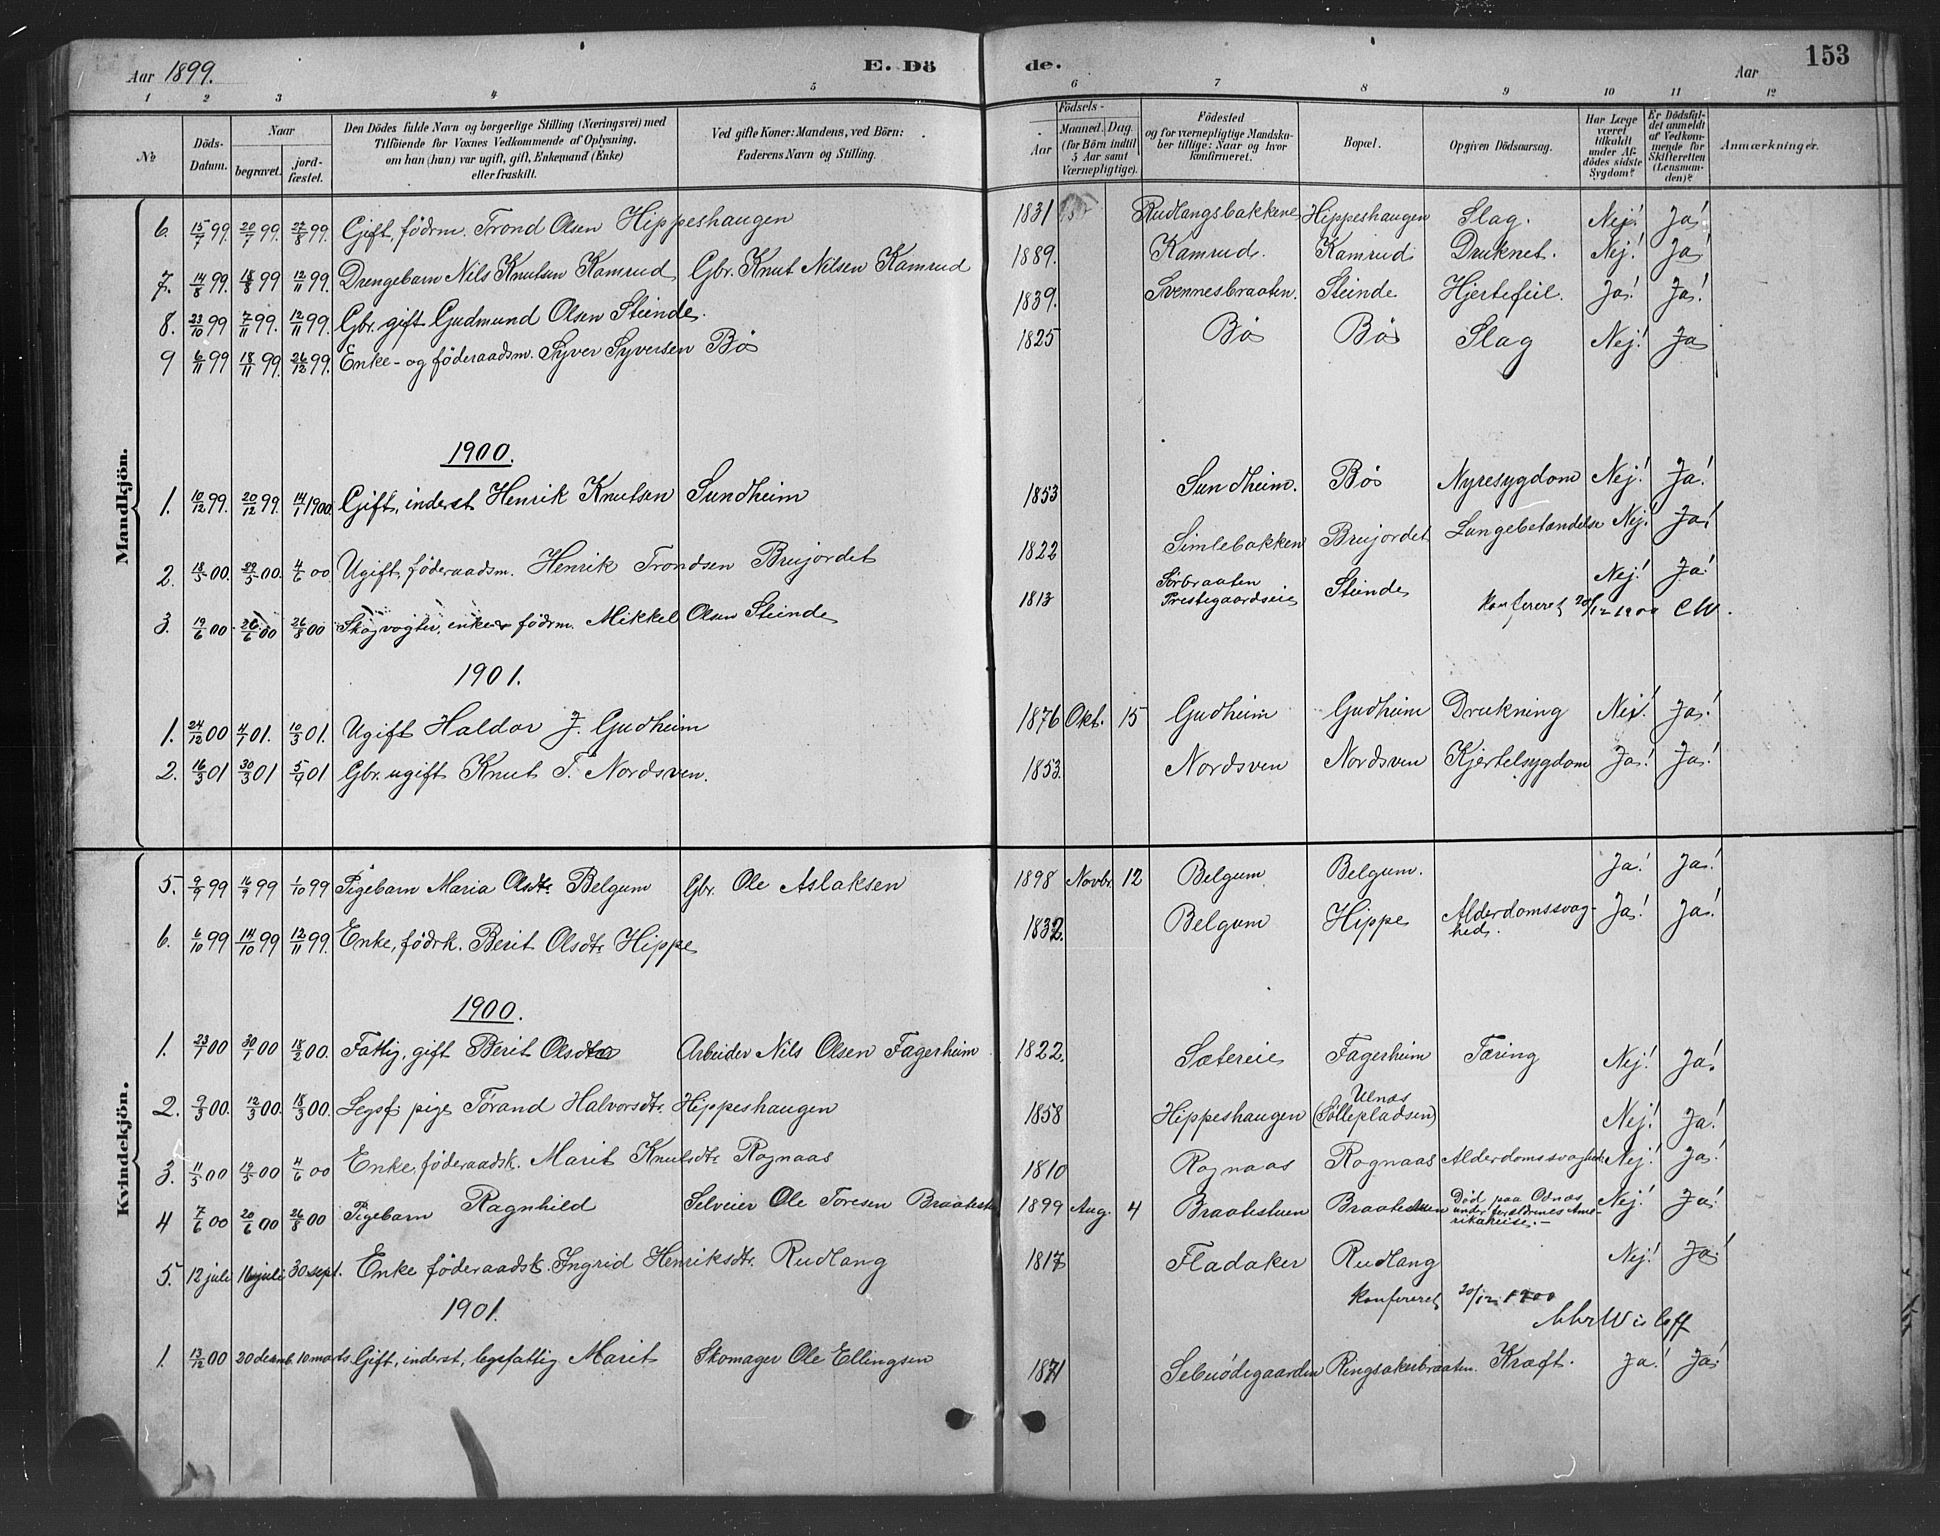 Aar 1899. E. Dö de. Aar 153
1 2 3 4 5 6 7 8 9 10 11 12
No Döds-Datum. Naar begravet. jord-fæstet. Den Dödes fulde Navn og borgerlige Stilling (Næringsvei) med Tilföiende for Voxnes Vedkommende af Oplysning, om han (hun) var ugift, gift, Enkemand (Enke) eller fraskilt. Ved gifte Koner: Mandens, ved Börn: Faderens Navn og Stilling. Födsels- Aar Maaned. Dag. (for Börn indtil 5 Aar samt Værnepligtige). Födested og for værnepligtige Mandskaber tillige: Naar og hvor konfirmeret. Bopæl. Opgiven Dödsaarsag. Har Læge været tilkaldt under Afdödes sidste Sygdom? Er Dödsfaldet anmeldt af Vedkommende for Skifteretten (Lensmanden)? Anmærkninger.
Mandkjön.
6. 15/7 99. 20/7 99. 27/8 99. Gift, födrm. Trond Olsen Hippeshaugen 1831 Rudlangsbakkene Hippeshaugen Slag. Nej! Ja!
7. 14/8 99. 18/8 99 12/11 99. Drengebarn Nils Knutsen Kamrud Gbr. Knut Nilsen Kamrud 1889. Kamrud. Kamrud Druknet. Nej! Ja!
8. 23/10 99 7/11 99. 12/11 99. Gbr. gift Gudmund Olsen Steinde. 1839. Svennesbraaten. Steinde Hjertefeil. Ja! Ja!
9 6/11 99 18/11 99. 26/12 99. Enke- og föderaadsm. Syver Syversen Bö 1825 Bö Bö Slag Nej! Ja
1900.
1. 10/12 99. 20/12 99. 14/1 1900. Gift, inderst Henrik Knutsen Sundheim 1853 Sundheim. Bö Nyresygdom Nej! Ja!
2. 18/5 00. 29/5 00. 4/6 00 Ugift, föderaadsm. Henrik Trondsen Brujordet 1822 Simlebakken Brujordet Lungebetændelse Nej! Ja!
3. 19/6 00 26/6 00 26/8 00 Skogvogter, enkem födrm. Mikkel Olsen Steinde 1813 Sörbraaten Prestegaardseie Steinde Nej! Ja!
konfereret 20/12 1900 CW.
1901.
1. 24/12 00 4/1 01. 10/3 01. Ugift Haldor J. Gudheim 1876 Okt. 15 Gudheim Gudheim Drukning Nej! Ja!
2. 16/3 01 30/3 01 5/4 01 Gbr. ugift Knut T. Nordsven. 1853. Nordsven Nordsven Kjertelsygdom Ja! Ja!
Kvindekjön.
5. 9/9 99 16/9 99 1/10 99 Pigebarn Maria Olsdtr. Belgum Gbr. Ole Aslaksen 1898 Novbr. 12 Belgum Belgum. Ja! Ja!
6. 6/10 99 14/10 99 12/11 99. Enke, födrk. Berit Olsdtr. Hippe 1832. Belgum Hippe Alderdomssvaghed. Ja! Ja!
1900.
1. 23/1 00 30/1 00 18/2 00. Fattig, gift Berit Olsdtr Arbeider Nils Olsen Fagerheim 1822. Sætereie Fagerheim Tæring Nej! Ja!
2. 9/3 00. 12/3 00. 18/3 00. Legsf. pige Törand Halvorsdtr. Hippeshaugen 1858 Hippeshaugen Ulnæs (Söllepladsen) Nej! Ja!
3. 11/5 00 19/5 00 4/6 00 Enke, föderaadsk. Marit Knutsdtr. Rognaas 1810 Rognaas Rognaas Alderdomssvaghed. Nej! Ja!
4 7/6 00 20/6 00 26/8 00 Pigebarn Ragnhild Selveier Ole Toresen Braatestu 1899 Aug. 4 Braatestuen Braatestuen Död paa Odnæs under forældrenes Amerikareise. Nej! Ja!
5. 12 juli 16 juli 30 sept. Enke föderaadsk. Ingrid Henriksdtr. Rudlang 1817 Fladaker Rudlang Nej! Ja!
konfereret 20/12 1900
1901.
1. 13/12 00 20 decmb. 10 marts Gift, inderst, legsfattig Marit Skomager Ole Ellingsen 1871 Ringsakerbraaten. Kræft. Ja! Ja!